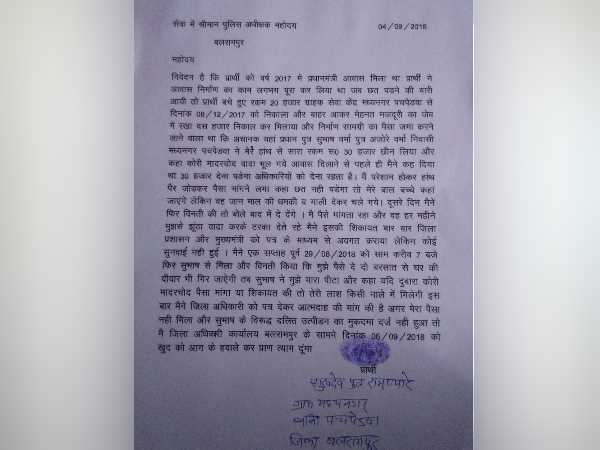 सेवा में श्रीमान पुलिस अधीक्षक महोदय 04/09/2018
बलरामपुर
महोदय
निवेदन है कि प्रार्थी को वर्ष 2017 में प्रधानमंत्री आवास मिला था प्रार्थी ने
आवास निर्माण का काम लगभग पूरा कर लिया था जब छत पडने की बारी
आयी तो प्रार्थी बचे हुए रकम 20 हजार ग्राहक सेवा केंद्र मध्यनगर पचपेडवा से
दिनांक 08/12/2017 को निकाला और बाहर आकर मेहनत मजदूरी का जेब
में रखा दस हजार निकाल कर मिलाया और निर्माण सामग्री का पैसा जमा करने
जाने वाला था कि अचानक वहां प्रधान पुत्र सुभाष वर्मा पुत्र अजोरे वर्मा निवासी
मध्यनगर पचपेडवा ने मेरे हाथ से सारा रकम रू0 30 हजार छीन लिया और
कहा कोरी मादरचोद वादा भूल गये आवास दिलाने से पहले ही मैने कह दिया
था 30 हजार देना पडेगा अधिकारियों को देना रहता है। मै परेशान होकर हाथ
पैर जोडकर पैसा मांगने लगा कहा छत नही पडेगा तो मेरे बाल बच्चे कहां
जाएंगे लेकिन वह जान माल की धमकी व गाली देकर चले गये। दूसरे दिन मैने
फिर विनती की तो बोले बाद में दे देंगे । मै पैसे मांगता रहा और वह हर महीने
मुझसे झूठा वादा करके टरका देते रहे मैने इसकी शिकायत बार बार जिला
प्रशासन और मुख्यमंत्री को पत्र के माध्यम से अवगत कराया लेकिन कोई
सुनवाई नही हुई । मैने एक सप्ताह पूर्व 29/08/2018 को साम करीब 7 बजे
फिर सुभाष से मिला और विनती किया कि मुझे पैसे दे दो बरसात से घर की
दीवार भी गिर जाऐगी तब सुभाष ने मुझे मारा पीटा और कहा यदि दुबारा कोरी
मादरचोद पैसा मांगा या शिकायत की तो तेरी लाश किसी नाले में मिलेगी इस
बार मैने जिला अधिकारी को पत्र देकर आत्मदाह की मांग की है अगर मेरा पैसा
नही मिला और सुभाष के विरूद्ध दलित उत्पीडन का मुकदमा दर्ज नही हुआ तो
मै जिला अधिकारी कार्यालय बलरामपुर के सामने दिनांक 06/09/2018 को
खुद को आग के हवाले कर प्राण त्याग दूंगा
प्रार्थी
पुत्र रामप्यारे
ग्राम मध्यनगर
थाना पचपेडवा
जिला बलरामपुर